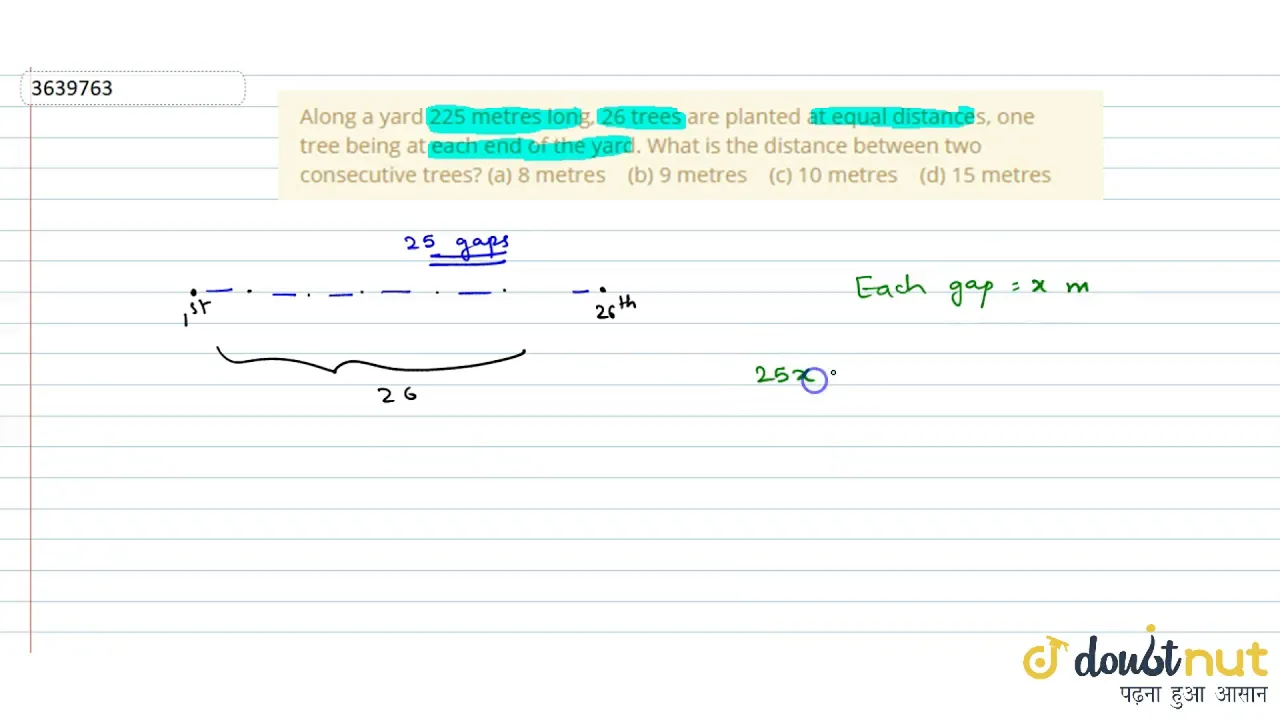 3639763
Along a yard 225 metres long, 26 trees are planted at equal distances, one
tree being at each end of the yard. What is the distance between two
consecutive trees? (a) 8 metres (b) 9 metres (c) 10 metres (d) 15 metres
25 gaps
1st
26th
Each gap = x m
26
25x
doubtnut
पढ़ना हुआ आसान